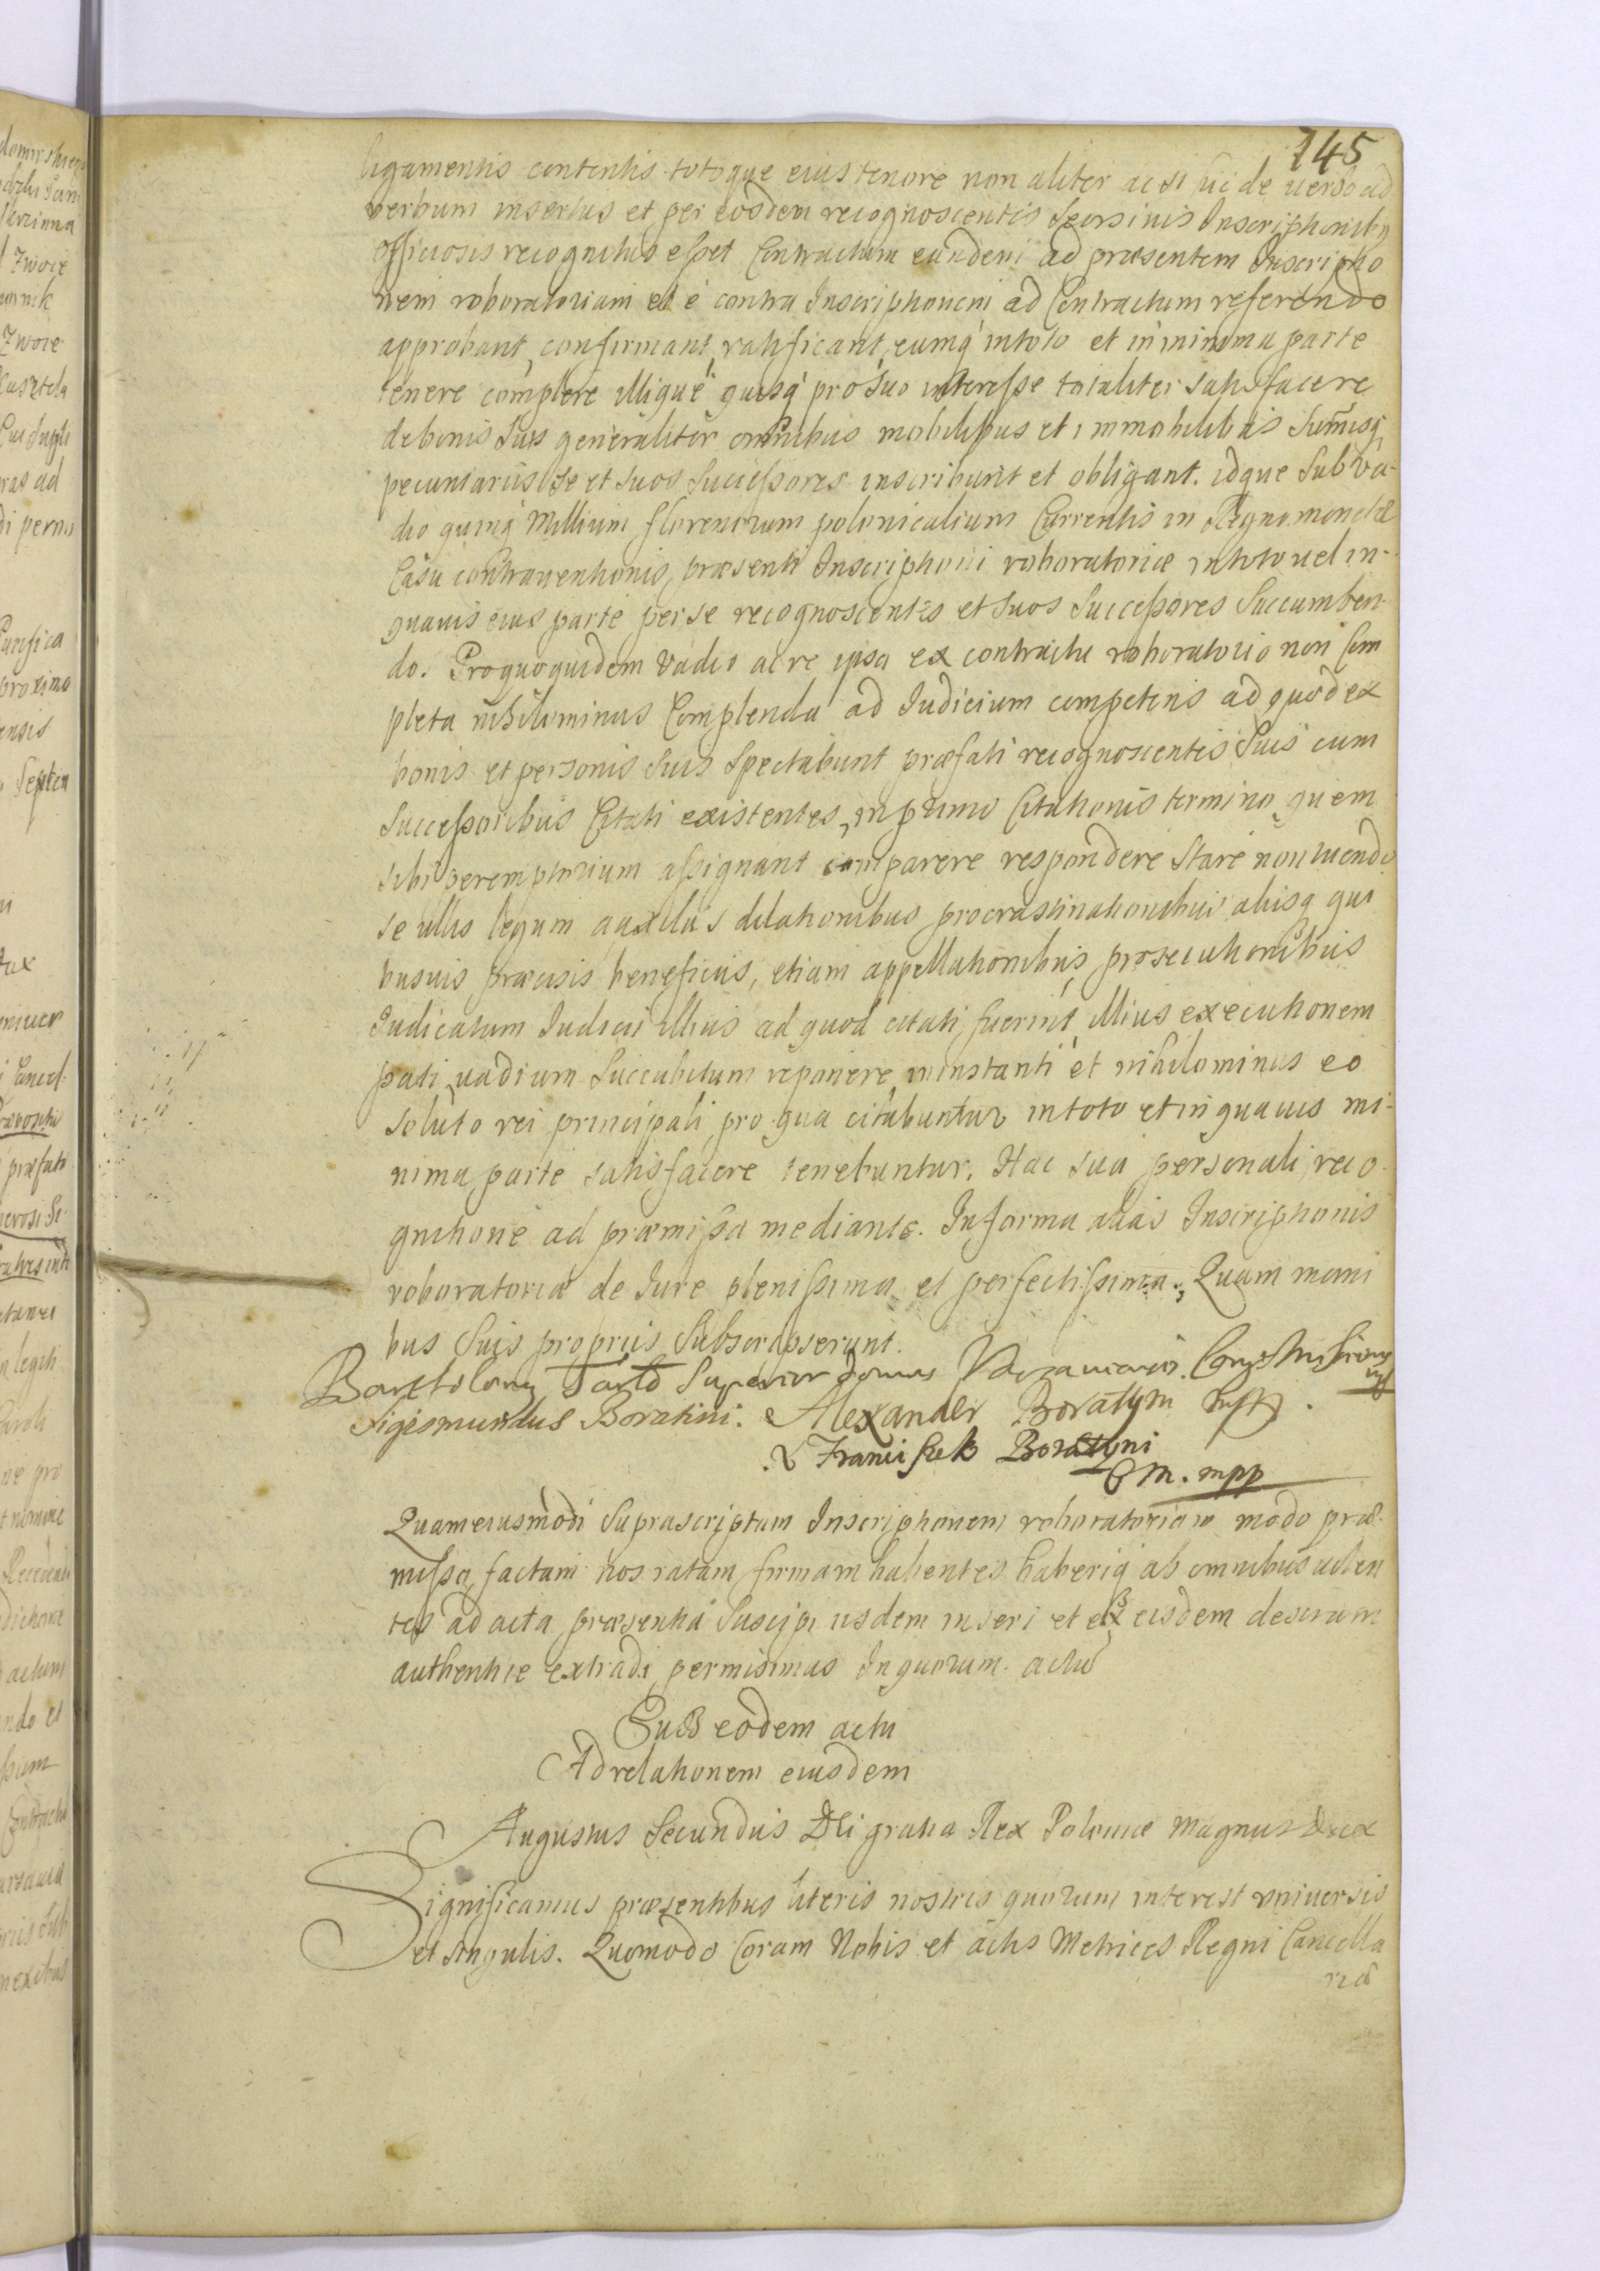 145
ligamentis contentis totoque eius tenore non aliter ac si hic de verbo ad
verbum insertus et per eosdem recognoscentes seorsivis Inscriptionibus
officiosis recognitus esset Contractum eundem ad præsentem Inscriptio
nem roboratoriam et e contra Inscriptionem ad Contractum referendo
approbant, confirmant, ratificant, eumq in toto et in minima parte
tenere complere illique quisq pro suo interesse totaliter satisfacere
de bonis suis generaliter omnibus mobilibus et immobilibus Summisq
pecuniariis se et suos Successores inscribunt et obligant. idque Sub va-
dio quinq Millium florenorum polonicalium Currentis in Regno monetæ
Casu contraventionis, præsenti Inscriptioni roboratoriæ in toto vel in-
quavis eius parte per se recognoscentes et suos Successores Succumben-
do. Pro quo quidem vadio ac re ipsa ex contractu roboratorio non Com
pleta nihilominus Complenda ad Iudicium competens ad quod ex
bonis et personis suis Spectabunt præfati recognoscentes Suis cum
Successoribus Citati existentes, in primo Citationis termino, quem
sibi peremptorium assignant comparere respondere Stare non tuendo
se ullis legum auxiliis dilationibus procrastinationibus aliisq qui
busvis præcisis beneficiis, etiam appellationibus, prosecutionibus
Iudicatum Iudicii illius ad quod citati fuerint, illius executionem
pati, vadium Succubitum reponere in instanti et nihilominus eo
soluto rei principali, pro qua citabuntur in toto et in quavis mi-
nima parte satisfacere tenebuntur. Hac sua personali reco-
gnitione ad præmissa mediante. In forma alias Inscriptionis
roboratoria de Iure plenissima et perfectissima. Quam mani
bus suis propriis Subscripserunt.
Bartolomeus Tarlo Superior Domus Varsaviensis
Sigismundus Boratini. Alexander Boratyni
Franciszek Boratyni
C M. mpp
Quam eiusmodi Suprascriptam Inscriptionem roboratoriam modo præ-
misso, factam nos ratam firmam habentes, haberiq ab omnibus volen
tes ad acta præsentia Suscipi iisdem inseri et ex eisdem descriptam
authentice extradi permisimus In quorum. actu
Sub eodem actu
Ad relationem eiusdem
Augustus Secundus Dei gratia Rex Poloniæ Magnus Dux
Significamus præsentibus literis nostris quorum interest universis
et singulis. Quomodo Coram Nobis et actis Metrices Regni Cancella
riæ